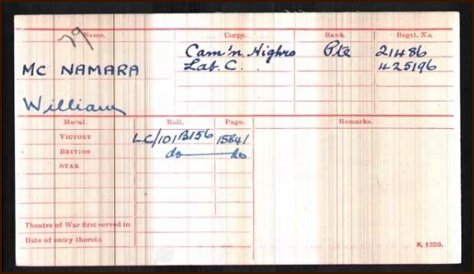 79
Name. Corps. Rank. Regtl. No.
MC NAMARA Cam'n Highrs Pte 21486
Lab. C. 425196
William
Medal. Roll. Page. Remarks.
VICTORY LC/101B156 15841
BRITISH do do
STAR
Theatre of War first served in
Date of entry therein
K. 1380.